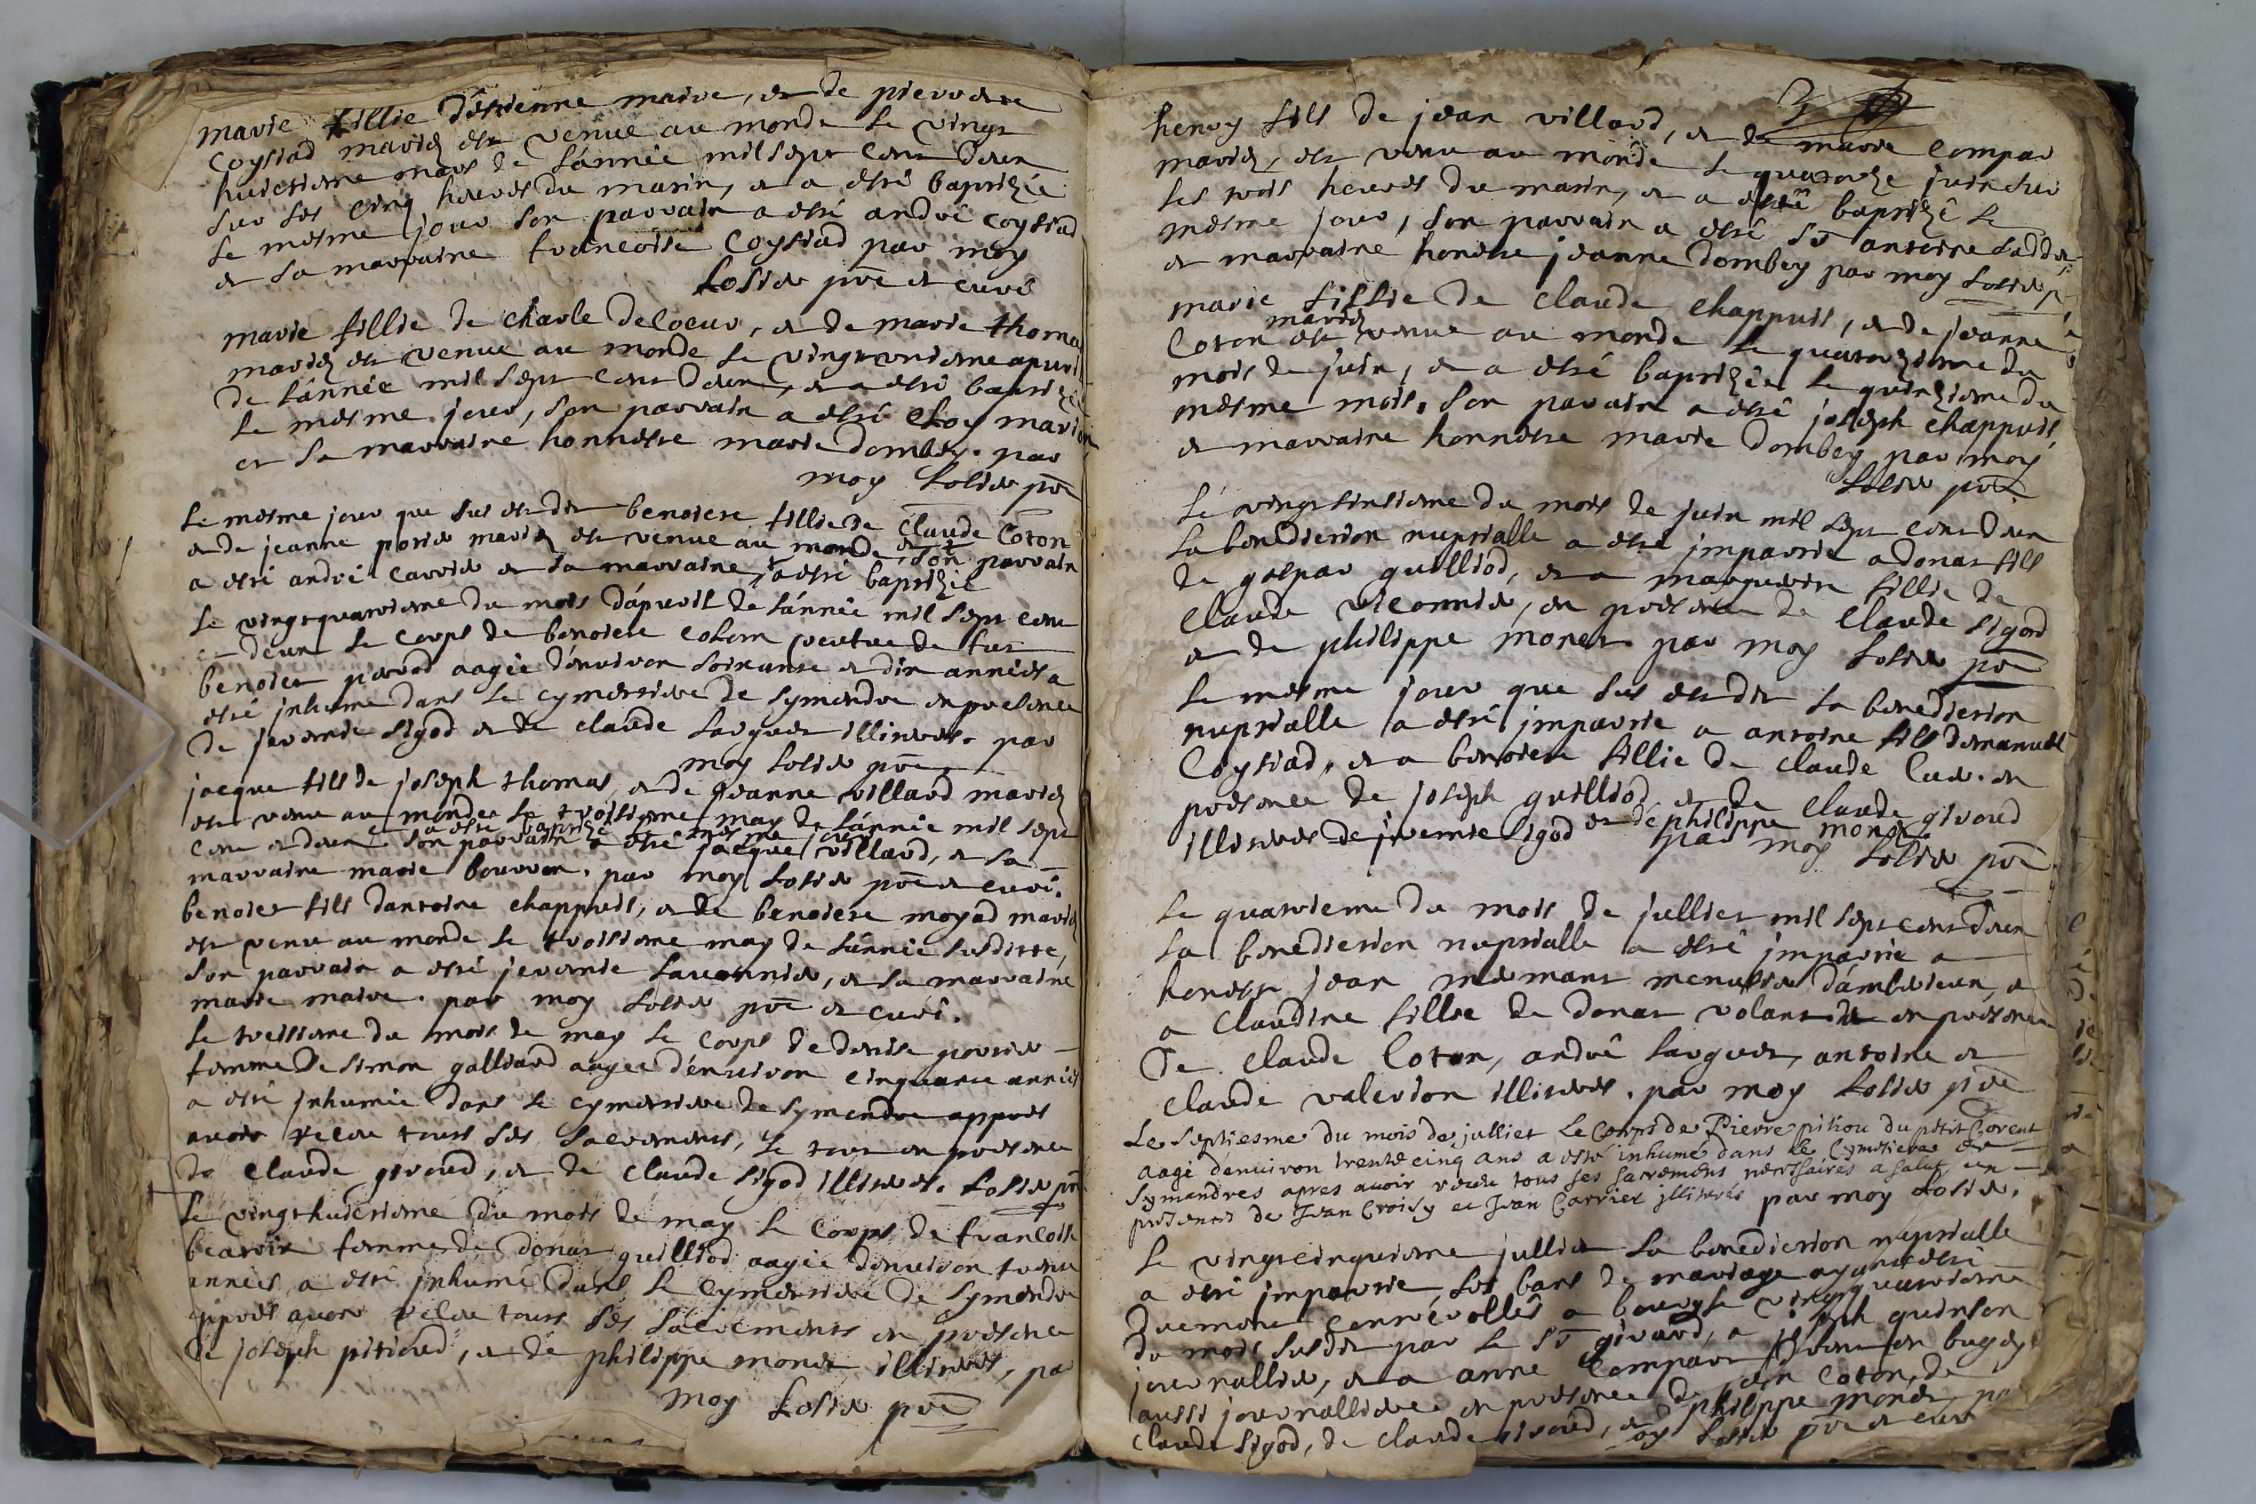 marie fillie d'estienne maire, et de pierrette
Coysiad mariez est venue au monde le vingt
huictieme mars de l'année mil sept cent deux
sur les cinq heures du matin, et a esté baptizée
le mesme jour son parrain a esté andré Coysiad
et sa marraine francoise Coysiad par moy
Losier pre et curé
marie fillie de charle Decoeur, et de marie thoma
mariez est venue au monde le vingt unieme apvril
de l'année mil sept cent deux, et a esté baptizé
le mesme jour, son parrain a esté Eloy marion
et sa marraine honneste marie dombey. par
moy Losier pre
le mesme jour que sus est dit benoiete fillie de Claude Coton
et de jeanne porier mariez est venue au monde et son parrain
a esté andré Carrier et sa marraine, j'a esté baptizée
le vingt quatrieme du mois d'apvril de l'année mil sept cent
et deux le corps de benoiete veufve de fut
benoiet aagée d'environ soixante et dix années a
esté inhumé dans le cymettiere de symandre en presence
de jeremie sigod et de claude Larguet illiteres. par
moy Losier pre
jacque fils de joseph thomas, et de jeanne villard mariez
est venu au monde le troisieme may de l'année mil sept
et a esté baptizé le mesme jour
cent et deux son parrain a esté jacque villard, et sa
marraine marie bouvier. par moy Losier pre et curé.
benoiet fils dantoine chappuis, et de benoiete moyad mariez
est venu au monde le troisieme may de l'année susditte,
son parrain a esté jeremie, et sa marraine
marie maire. par moy Losier pre et curé.
le treisieme du mois de may le corps de denise porrier
femme de simon galliard aagée d'environ cinquante années
a esté inhumée dans le cymettiere de symandre appres
avoir receu tous ses sacrements, le tout en presence
de claude giroud, et de claude sigod illiteres. Losier pre
le vingt huictieme du mois de may le corps de francoise
femme de donat guilliod aagée denviron trente
années, a esté inhumé dans le cymettiere de symandre
appres avoir receu tous ses sacrements en presence
de joseph pitioud, et de philippe monet illiteres, par
moy Losier pre
henry fils de jean villard, et de marie compar
mariez, est venu au monde le quatorze juin sur
les trois heures du matin, et a esté baptizé le
mesme jour, son parrain a esté sr antoine
et marraine honeste jeanne dombey par moy Losier
marie fillie de claude chappuis, et de jeanne
mariez
Coton est venue au monde le quatorzieme du
mois de juin, et a esté baptizée le quinzieme du
mesme mois. son parrain a esté joseph chappuis,
et marraine honneste marie dombey par moy
Losier pre
le vingt sixsieme du mois de juin mil sept cent deux
la benediction nuptialle a esté impartie a donat fils
de gaspar guilliod, et a marguerite fillie de
claude, en presence de claude sigod
et de philippe monet par moy Losier pre
le mesme jour que sus est dit la benediction
nuptialle a esté impartie a antoine fils demanuel
Coysiad. et a benoiete fillie de claude en
presence de joseph guilliod et de claude giroud
illiteres de jeremie sigod et de philippe monet
par moy Losier pre
le quatrieme du mois de julliet mil sept cent deux
la benediction nuptialle a esté impartie a
honeste jean mermant menusier d'amberieux, et
a claudine fillie de donat volant en presence
de claude Coton, andré Larguet, antoine et
claude valerion illiteres. par moy Losier pre
Le septiesme du mois de julliet Le corps de Pierre pitiou du petit Corent
aagé denviron trente cinq ans a esté inhumé dans le Cymetiere de
Symandres apres avoir receu tous ses sacremens necessaires a salut, en
presences de Jean Croisy et Jean Carrier illiterés par moy Losier.
le vingt cinquieme julliet la benediction nuptialle
a esté impartie, les bans de mariage ayant esté
du mois susdit par le sr girard, a joseph guinson
journallier, et a anne Compart en bugey
aussi journalliere en presence de jean Coton, de
claude sigod, de claude giroud, et de philippe monet par
moy Losier pre et curé